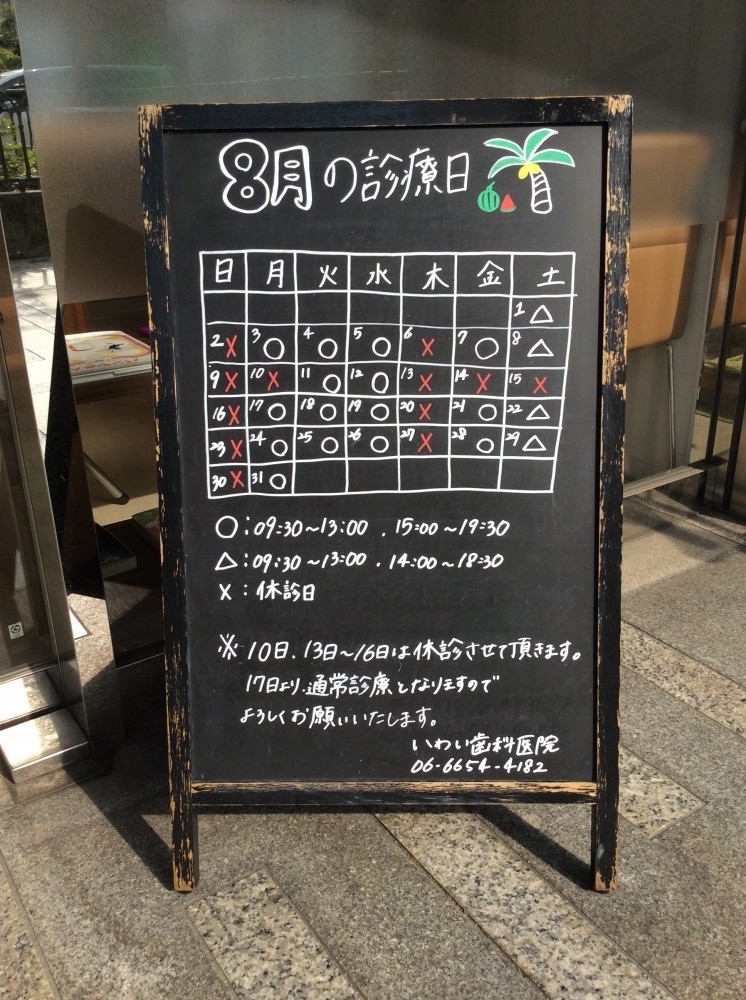 8月の診療日
日 月 火 水 木 金 土
1 △
2 X 3 ○ 4 ○ 5 ○ 6 X 7 ○ 8 △
9 X 10 X 11 ○ 12 ○ 13 X 14 X 15 X
16 X 17 ○ 18 ○ 19 ○ 20 X 21 ○ 22 △
23 X 24 ○ 25 ○ 26 ○ 27 X 28 ○ 29 △
30 X 31 ○
○:09:30~13:00 . 15:00~19:30
△:09:30~13:00 . 14:00~18:30
X:休診日
※10日、13日~16日は休診させて頂きます。
17日より、通常診療となりますので
よろしくお願いいたします。
いわい歯科医院
06-6654-4182